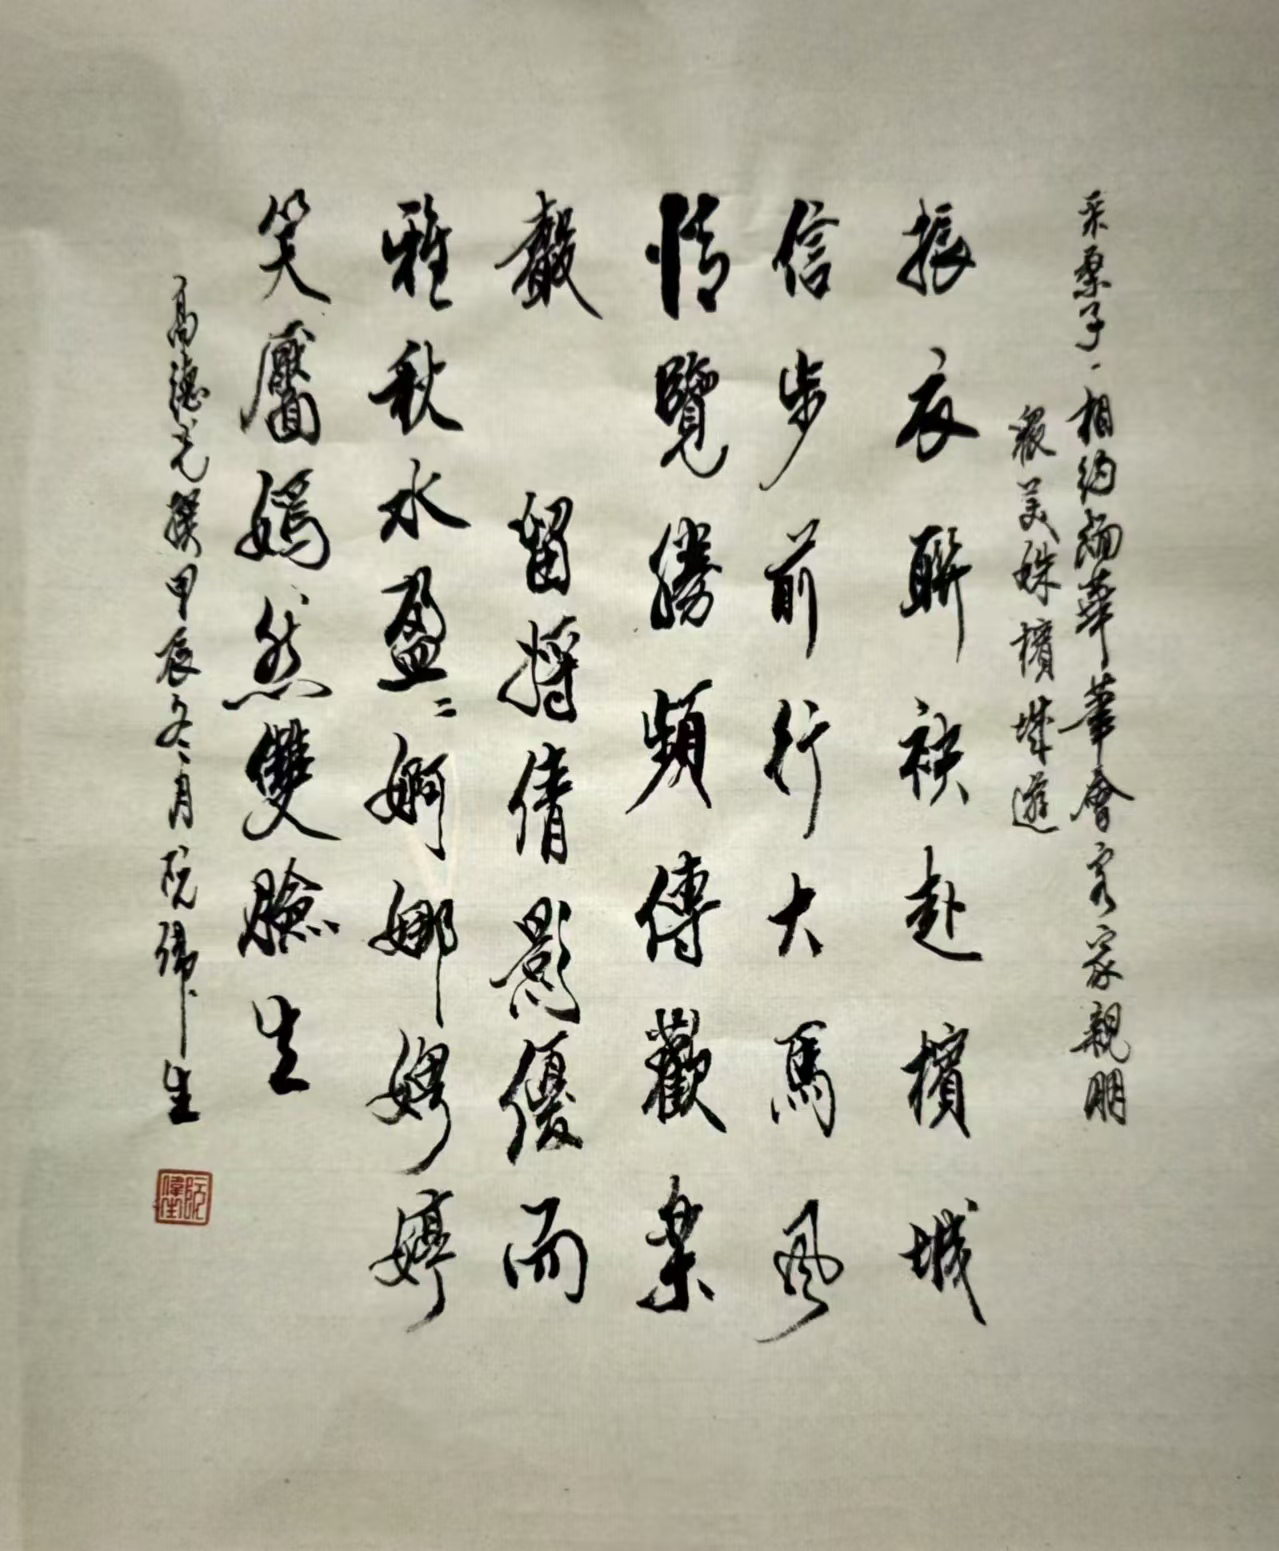 采桑子、相約緬華筆會客家親朋
眾美姝檳城遊
振衣聯袂赴檳城
信步前行大馬風
情覽勝頻傳歡樂
聲 留將倩影優而
雅秋水盈〻婀娜娉婷
笑靨嫣然雙臉生
高德光撰甲辰冬月阮偉生
阮偉生